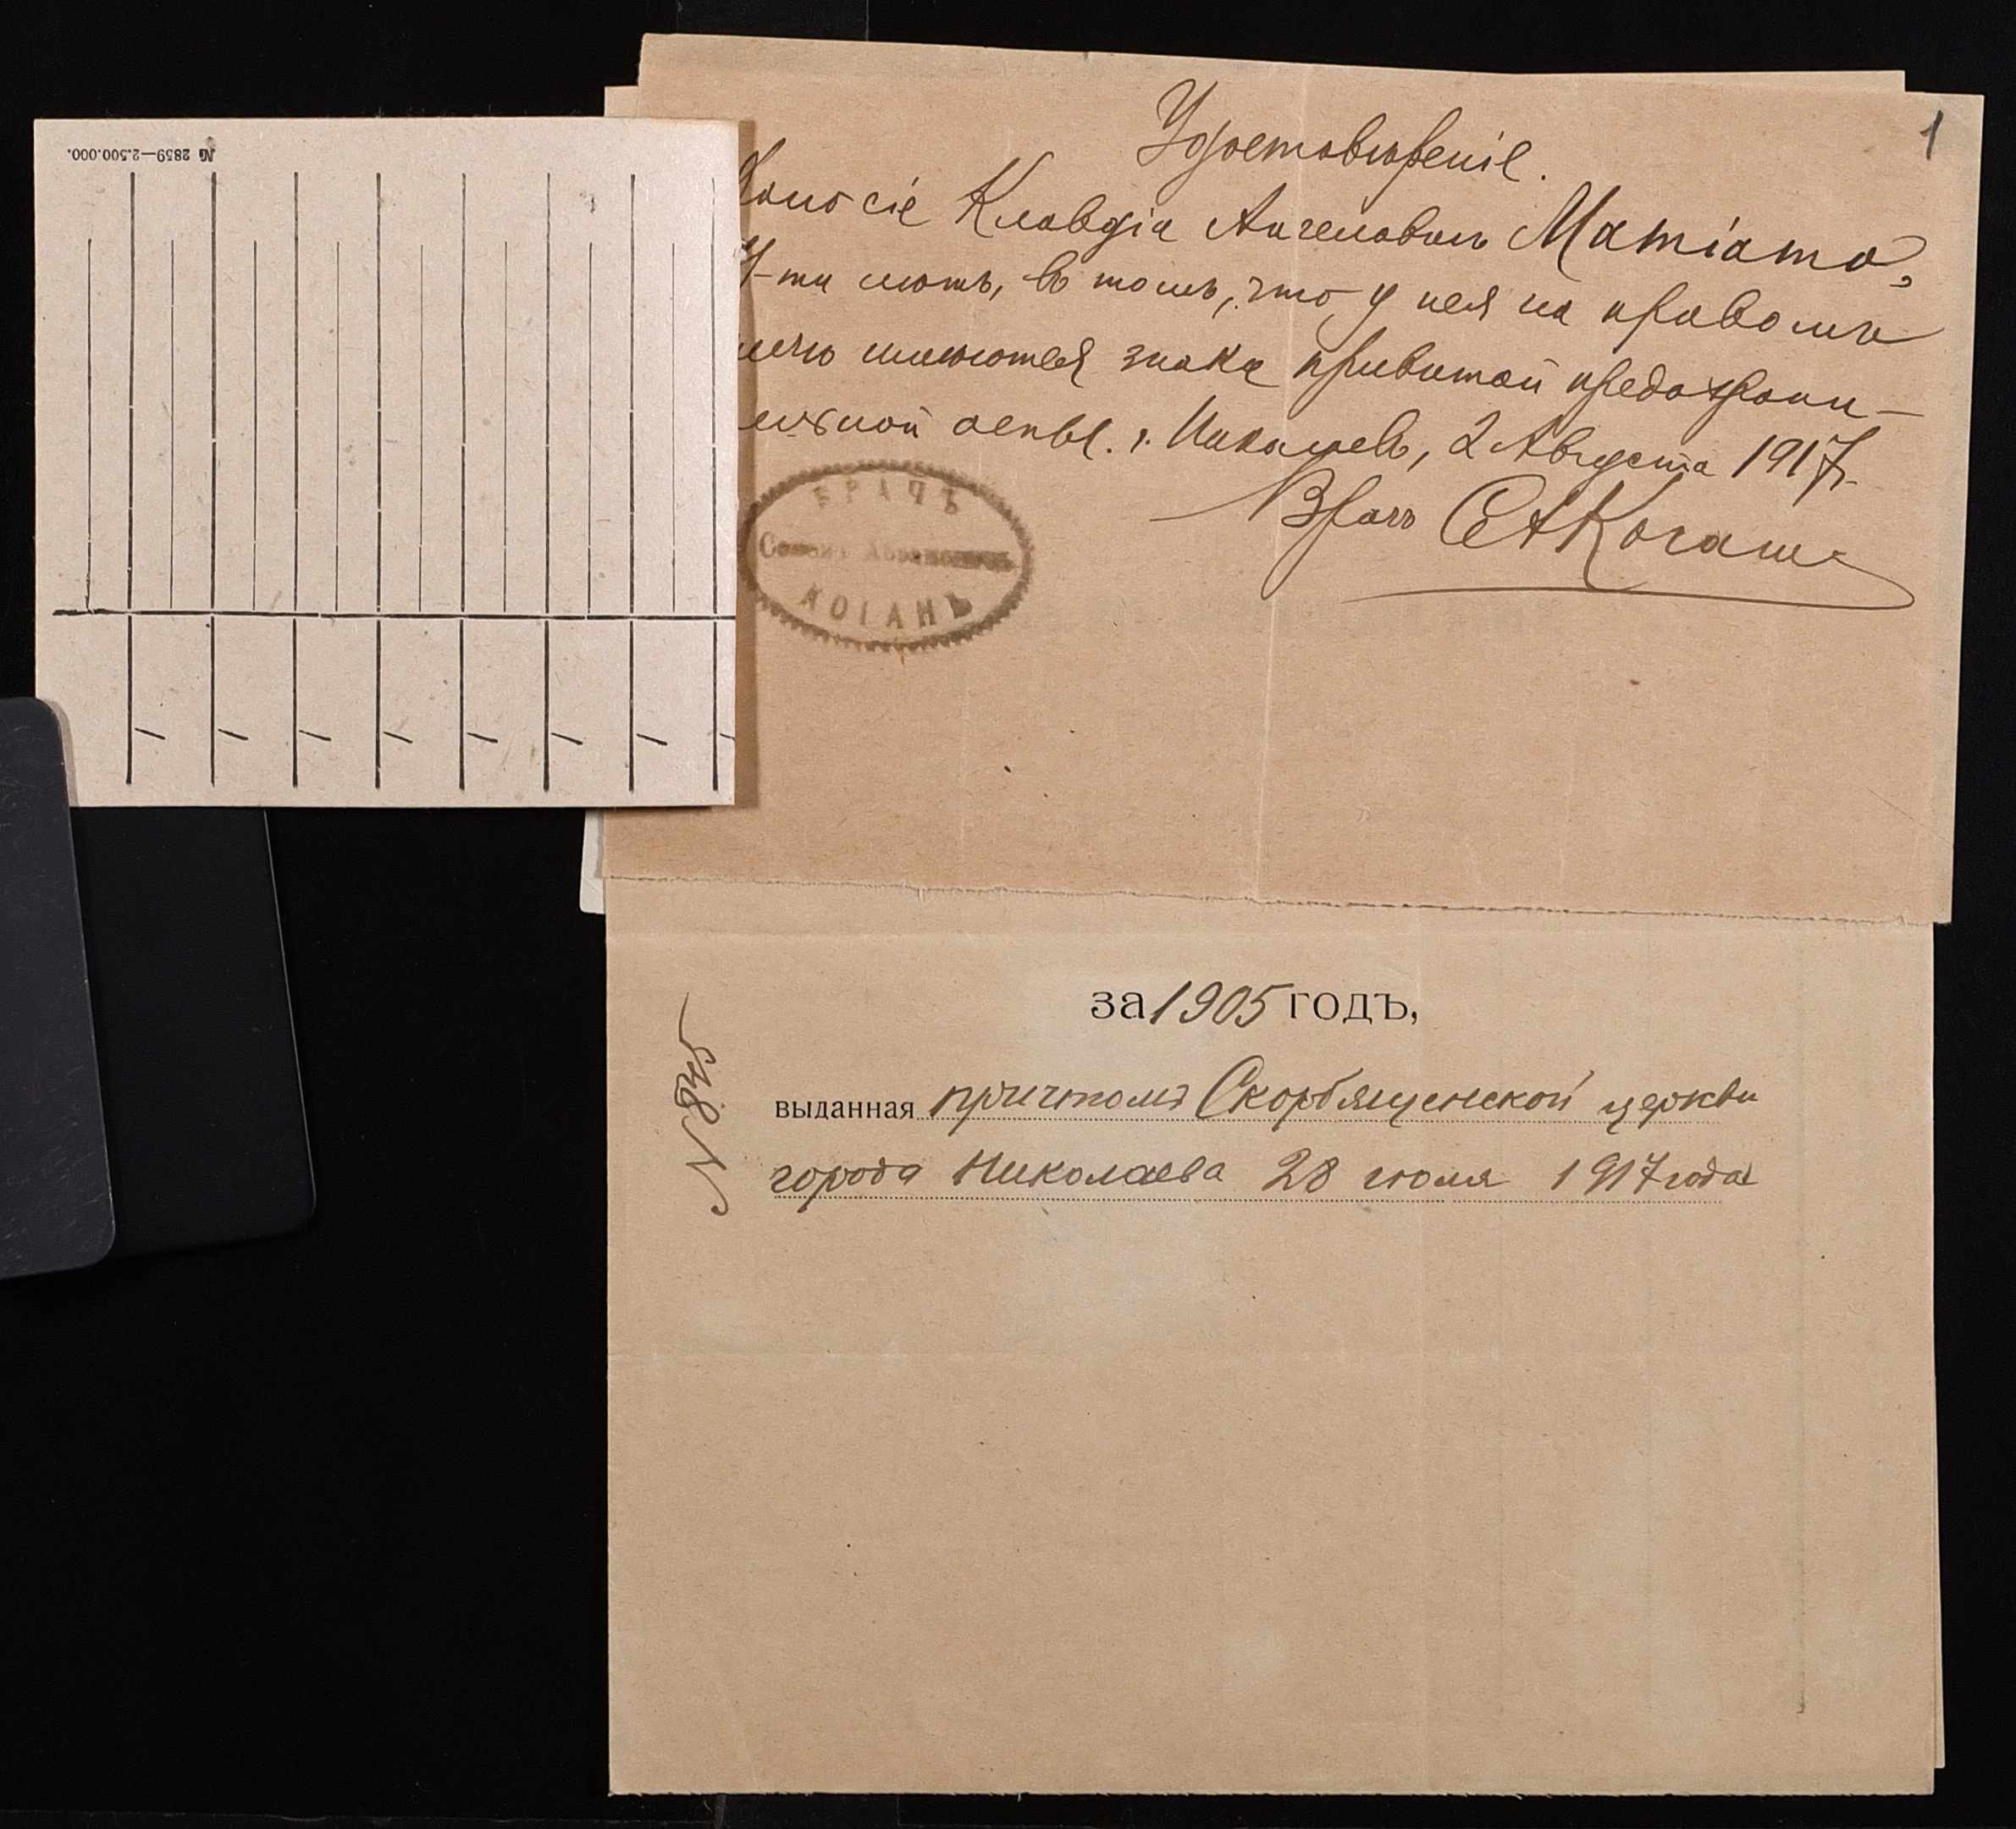 № 2859—2.500.000.
1
Удостовѣреніе.
дано сіе Клавдіи Ангеловнѣ Матіато,
-ти лѣтъ, въ томъ, что у нея на правомъ
плечѣ имѣются знаки привитой предохрани-
ельной оспы. г. Николаевъ, 2 Августа 1917 г.
Врачъ САКоганъ
ВРАЧЪ
Абрамовичъ
КОГАНЪ
за 1905 годъ,
выданная причтомъ Скорбященской церкви
города Николаева 28 іюля 1917 года